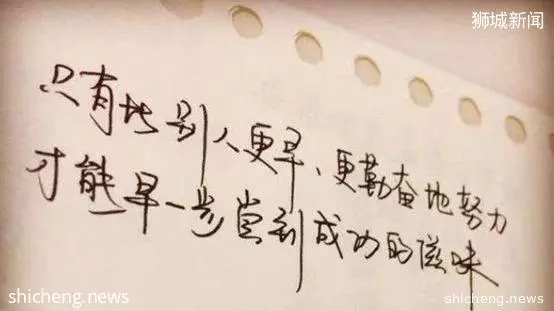 狮城新闻
只有比别人更早、更勤奋地努力
才能早一步尝到成功的滋味
shicheng.news
shicheng.news